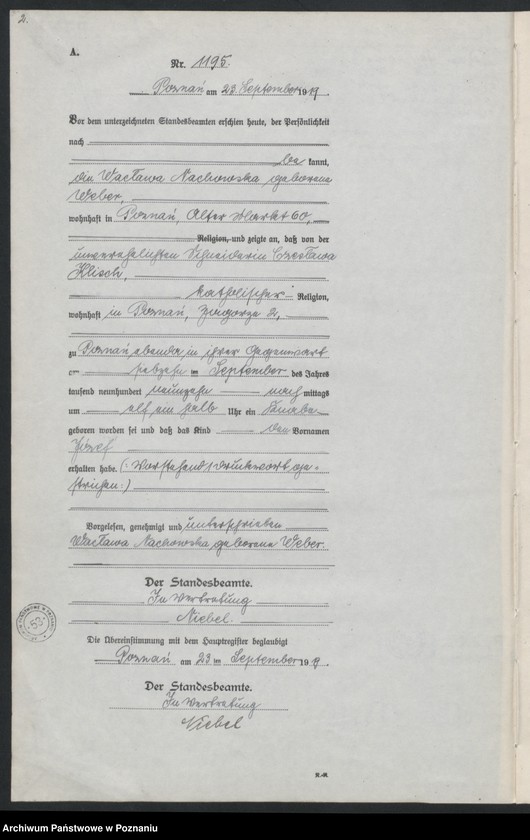 2.
A.
Nr. 1195.
Poznań am 23. September 1919.
Vor dem unterzeichneten Standesbeamten erschien heute, der Persönlichkeit
nach
be kannt,
die Wacława Nachowska geborene
Weber,
wohnhaft in Poznań, Alter Markt 60,
Religion, und zeigte an, daß von der
unverehelichten Schneiderin Czesława
Klisch,
katholischer Religion,
wohnhaft in Poznań, Zagorze 2,
zu Poznań ebenda in ihrer Gegenwart
am siebzehn ten September des Jahres
tausend neunhundert neunzehn nach mittags
um elf ein halb Uhr ein Knabe
geboren worden sei und daß das Kind den Vornamen
Józef
erhalten habe. (: Vorstehend 1 Druckwort ge=
strichen :)
Vorgelesen, genehmigt und unterschrieben
Wacława Nachowska, geborene Weber.
Der Standesbeamte.
In Vertretung
Niebel.
Die Übereinstimmung mit dem Hauptregister beglaubigt
Poznań am 23 ten September 1919.
Der Standesbeamte.
In Vertretung
Niebel
53
K.-R.
Archiwum Państwowe w Poznaniu